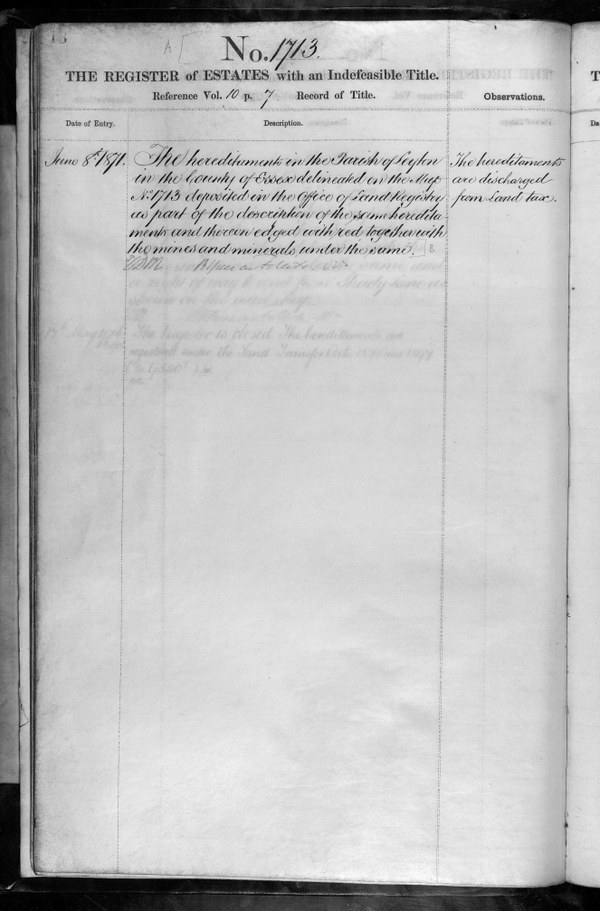 No. 1713.
THE REGISTER of ESTATES with an Indefeasible Title.
Reference Vol. 10 p. 7 Record of Title.
Observations.
Date of Entry.
Description.
June 8th 1871.
The hereditaments in the Parish of Leyton
in the County of Essex delineated on the Map
No. 1713 deposited in the Office of Land Registry
as part of the description of the same heredita-
ments and thereon edged with red together with
the mines and minerals under the same.
The hereditaments
are discharged
from Land tax.
The Register is closed The hereditaments are
registered under the Land Transfer Acts 1875 and 1897